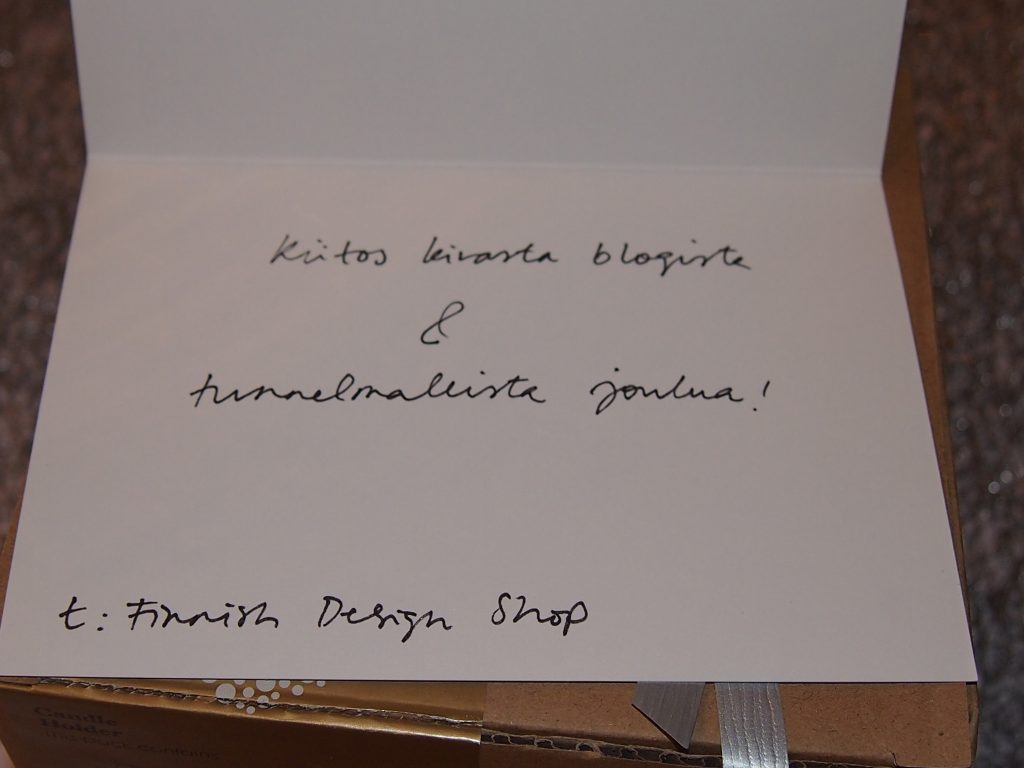 Kiitos kivasta blogista
&
tunnelmallista joulua!
t: Finnish Design Shop
Candle
Holder